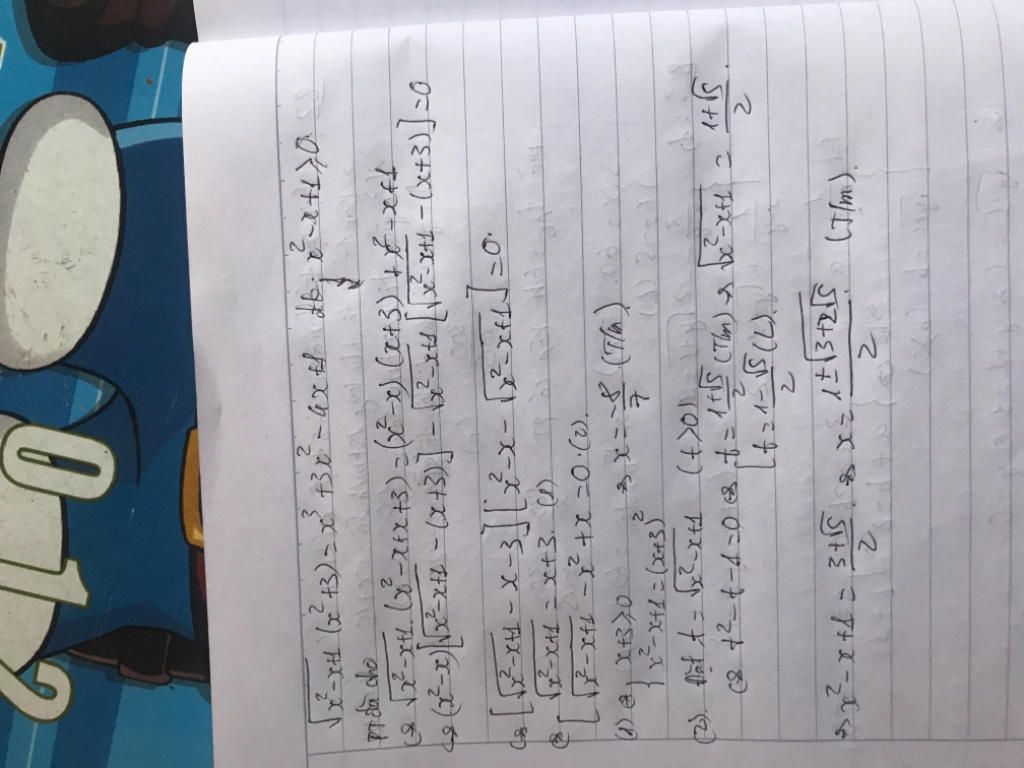 √(x²-x+1) (x²+3) = x³+3x²-4x+1 đk: x²-x+1 ≥ 0
pt đã cho
⇔ √(x²-x+1) (x²-x+x+3) = (x²-x)(x+3) + x²-x+1
⇔ (x²-x)[√(x²-x+1) - (x+3)] - √(x²-x+1)[√(x²-x+1) - (x+3)] = 0
⇔ [√(x²-x+1) - x - 3][x²-x - √(x²-x+1)] = 0.
⇔ [ √(x²-x+1) = x+3. (1)
√(x²-x+1) - x²+x = 0. (2).
(1) ⇔ { x+3 ≥ 0
x²-x+1 = (x+3)² ⇒ x = -8/7 (T/m)
(2). Đặt t = √(x²-x+1) (t>0)
⇔ t²-t-1=0 ⇔ [ t = (1+√5)/2 (T/m) → √(x²-x+1) = (1+√5)/2.
t = (1-√5)/2 (L)
⇒ x²-x+1 = (3+√5)/2. ⇔ x = (1±√(3+2√5))/2 (T/m).